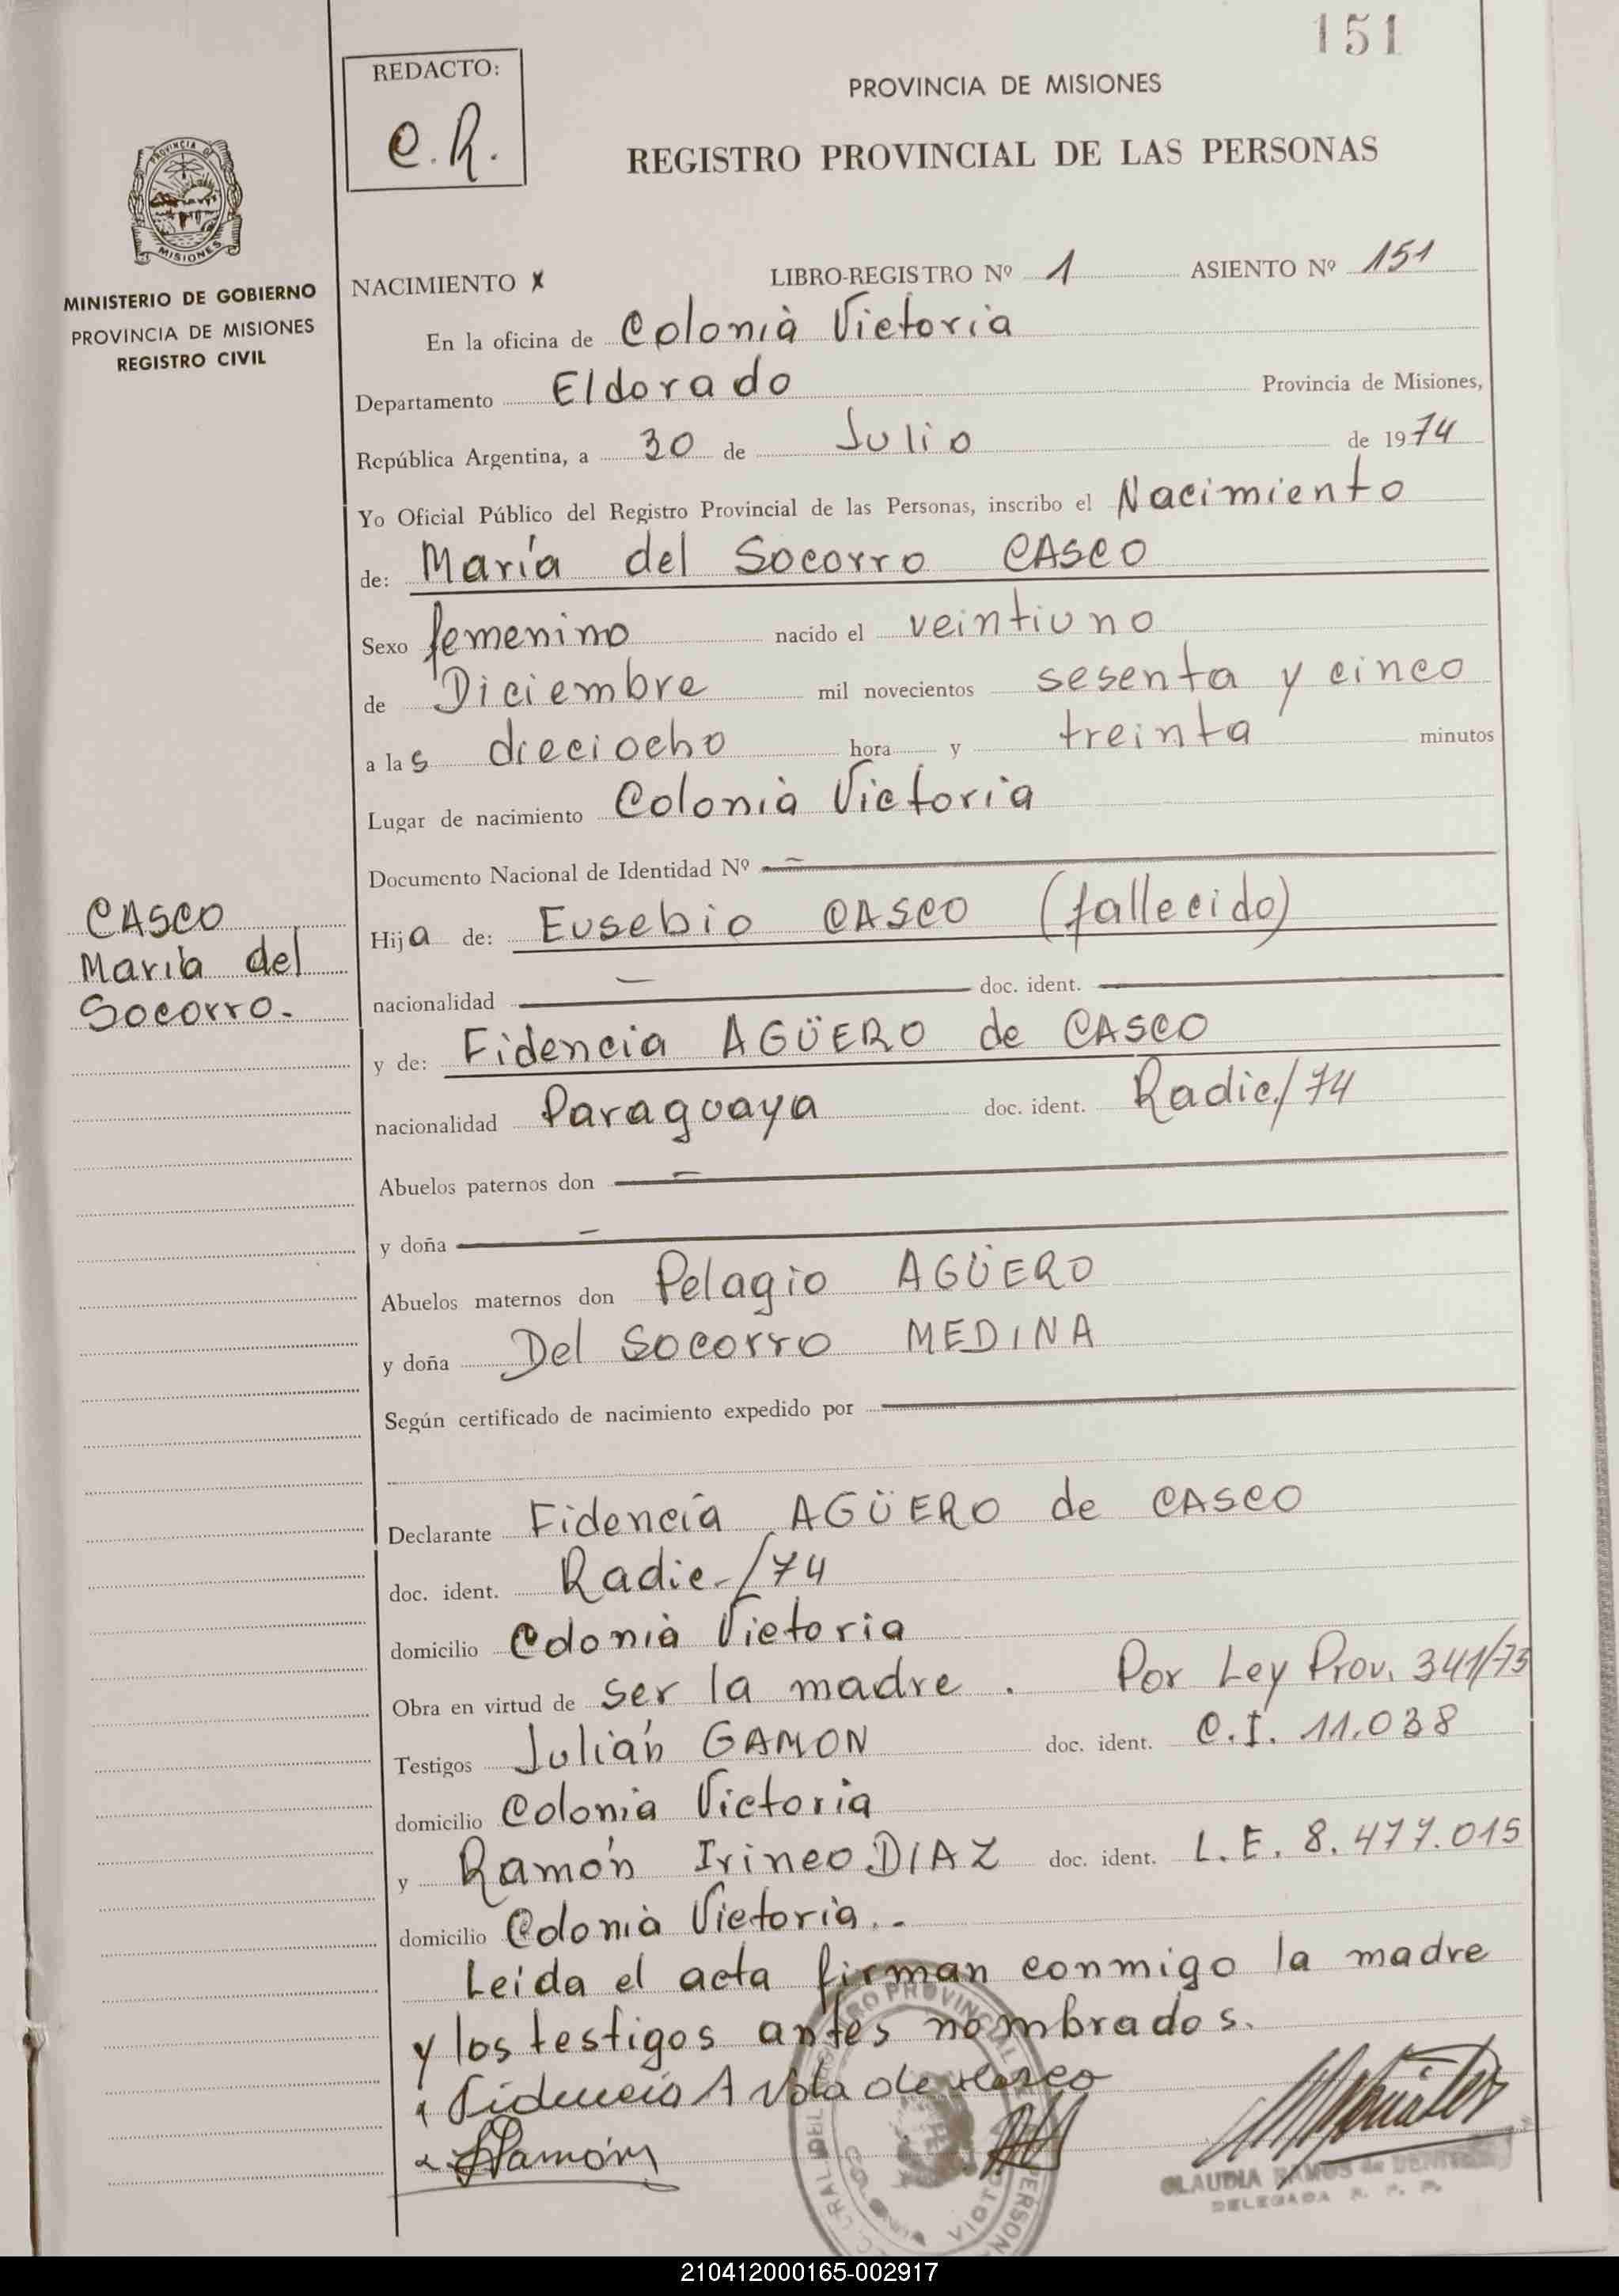 151
REDACTO:
C.R.
PROVINCIA DE MISIONES
REGISTRO PROVINCIAL DE LAS PERSONAS
PROVINCIA DE
MISIONES
MINISTERIO DE GOBIERNO
PROVINCIA DE MISIONES
REGISTRO CIVIL
NACIMIENTO x LIBRO-REGISTRO Nº 1 ASIENTO Nº 151
En la oficina de Colonia Victoria
Departamento Eldorado Provincia de Misiones,
República Argentina, a 30 de Julio de 1974
Yo Oficial Público del Registro Provincial de las Personas, inscribo el Nacimiento
de: María del Socorro CASCO
Sexo femenino nacido el veintiuno
de Diciembre mil novecientos sesenta y cinco
a las dieciocho hora y treinta minutos
Lugar de nacimiento Colonia Victoria
Documento Nacional de Identidad Nº
CASCO
María del
Socorro.-
Hija de: Eusebio CASCO (fallecido)
nacionalidad doc. ident.
y de: Fidencia AGÜERO de CASCO
nacionalidad Paraguaya doc. ident. Radic/74
Abuelos paternos don
y doña
Abuelos maternos don Pelagio AGÜERO
y doña Del Socorro MEDINA
Según certificado de nacimiento expedido por
Declarante Fidencia AGÜERO de CASCO
doc. ident. Radic-/74
domicilio Colonia Victoria
Obra en virtud de ser la madre. Por Ley Prov. 341/73
Testigos Julián GAMON doc. ident. C.I. 11.038
domicilio Colonia Victoria
y Ramón Irineo DIAZ doc. ident. L.E. 8.477.015
domicilio Colonia Victoria..-
Leída el acta firman conmigo la madre
y los testigos antes nombrados.
Fidencia de Casco
CLAUDIA RAMOS de
DELEGADA R. P. P.
210412000165-002917